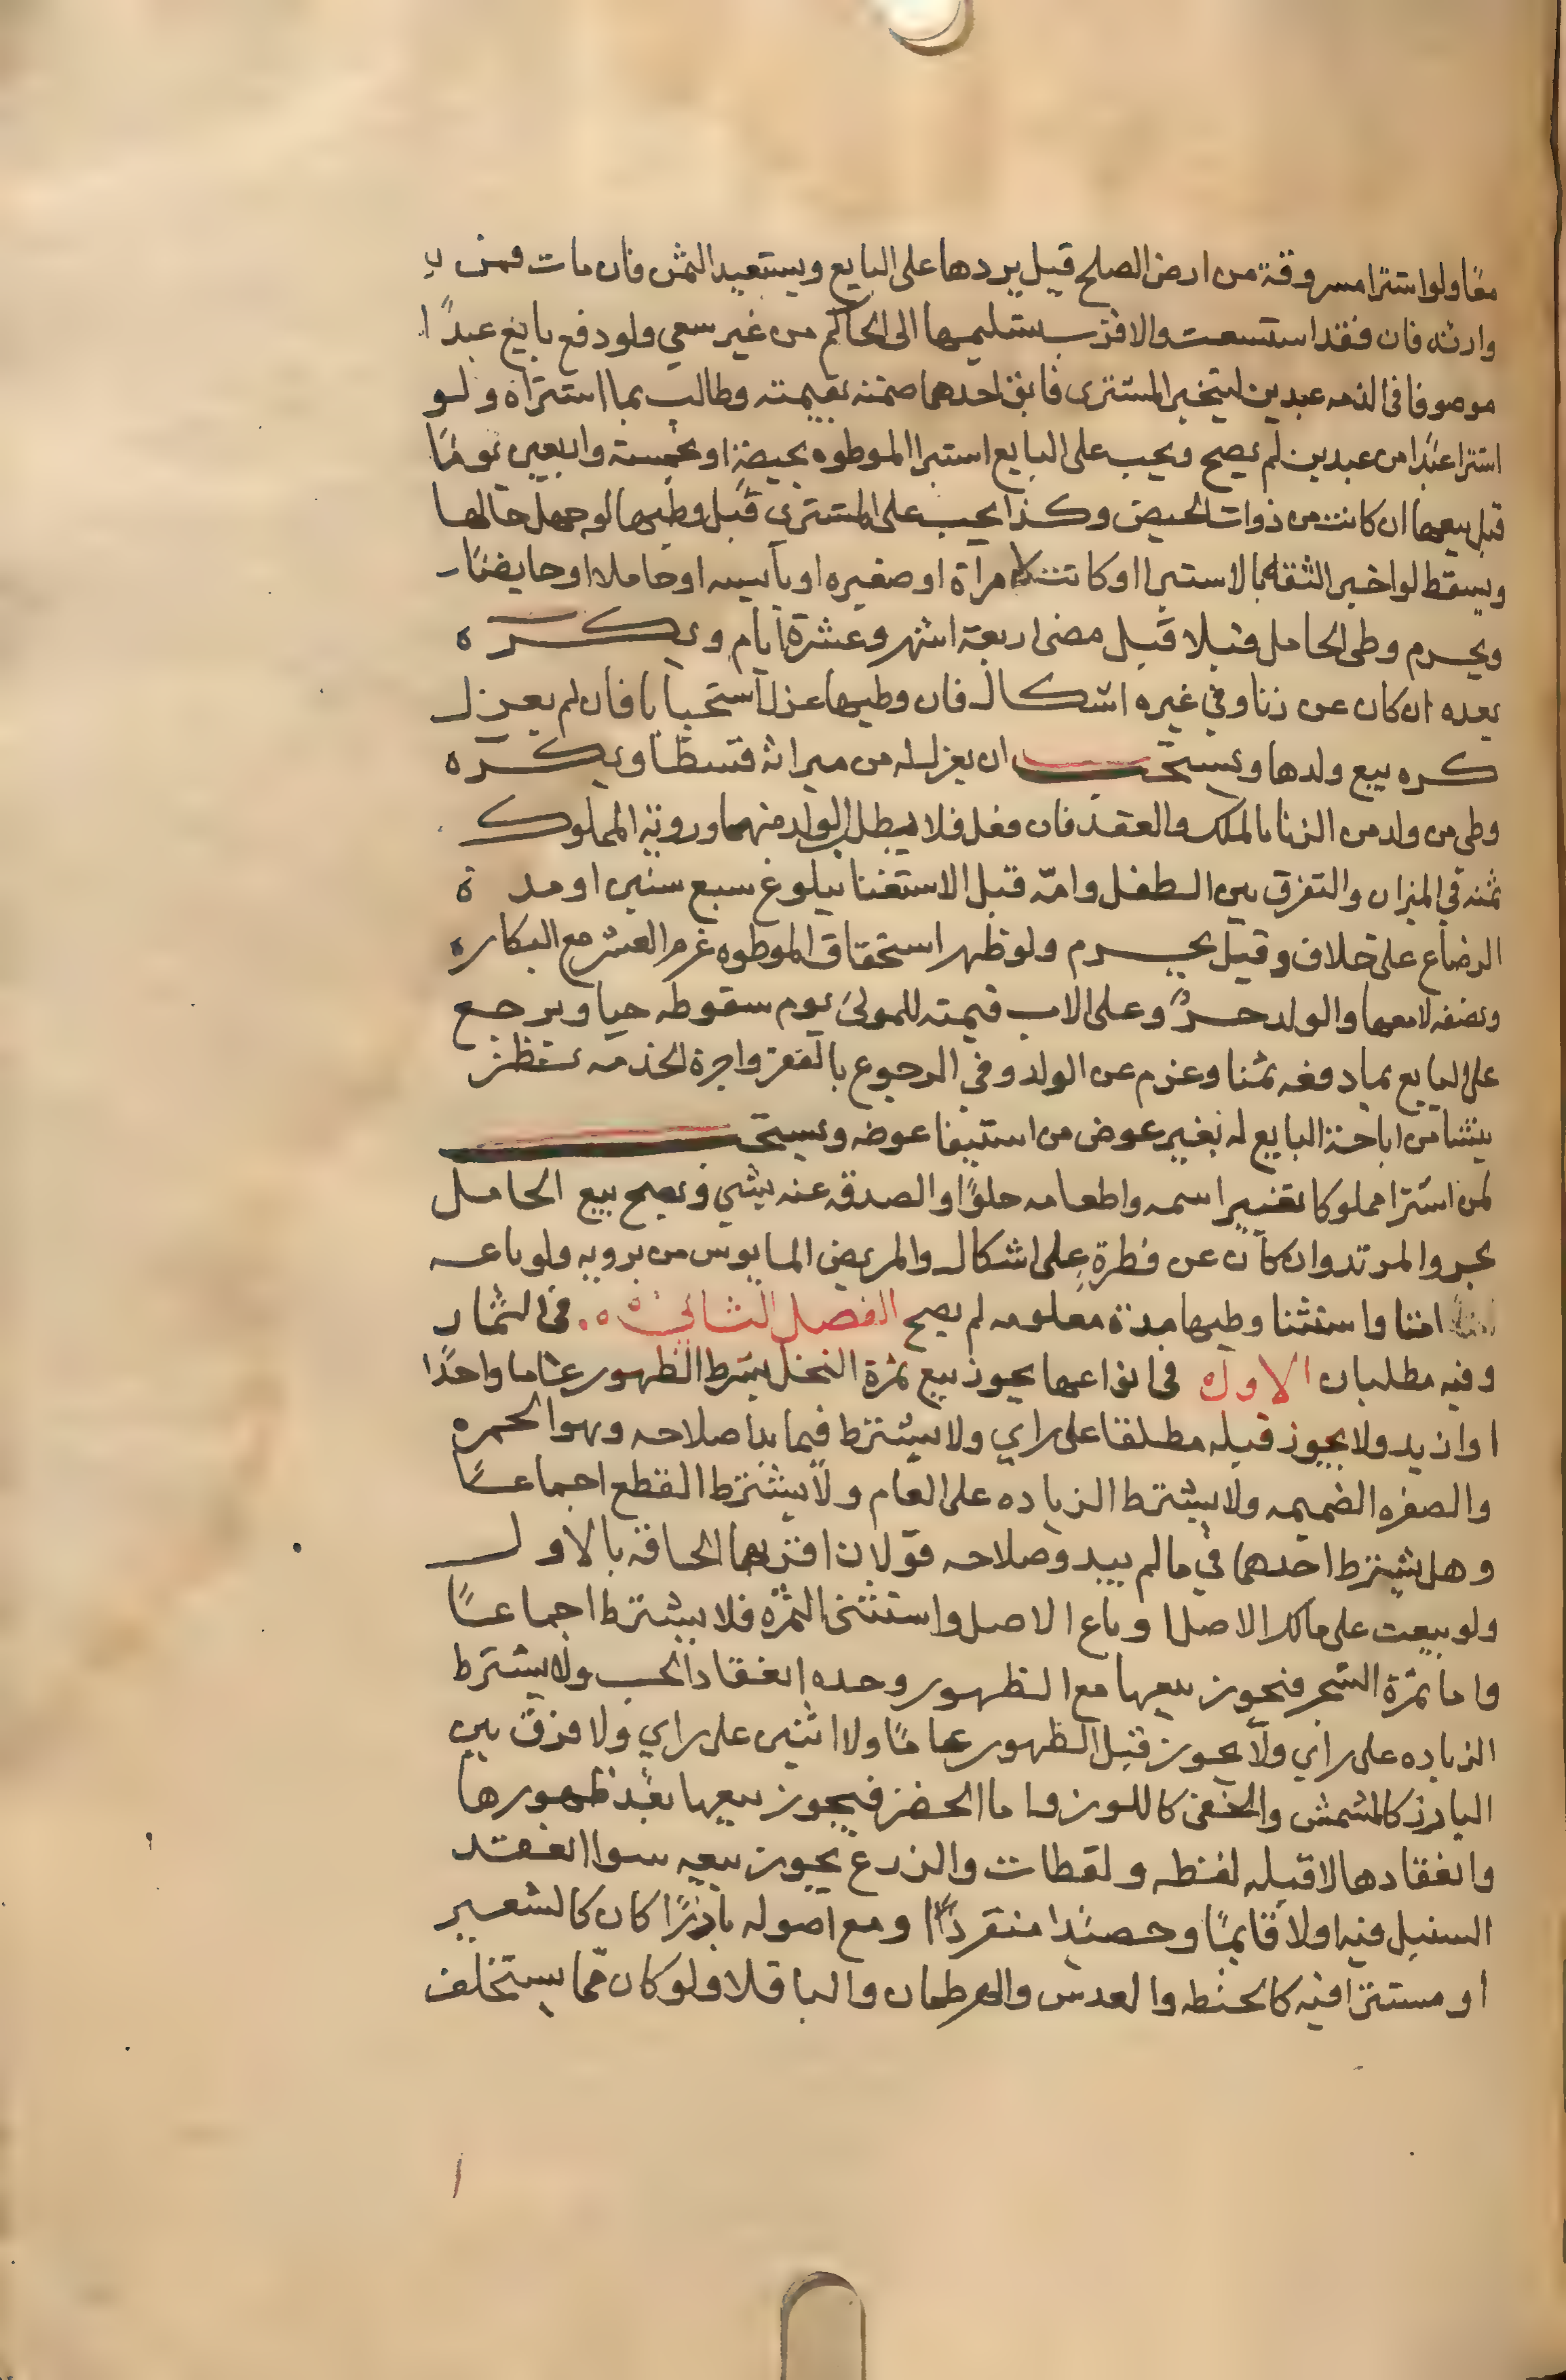 معًا ولو اشترا مسروقة من ارض الصلح قيل يردها على البايع ويستعيد الثمن فان مات فمن
وارثه فان فقد استسعت والاقرب تسليمها الى الحاكم من غير سعي ولو دفع بايع عبدًا
موصوفا في الذمه عبدين ليتخير المشترى فابق احدهما ضمنه بقيمته وطالب بما اشتراه ولو
اشترا عبدًا من عبدين لم يصح ويجب على البايع استبرا الموطوه بحيضة او بخمسة واربعين يومًا
قبل بيعها ان كانت من ذوات الحيض وكذا يجب على المشترى قبل وطيها لو جهل حالها
ويسقط لو اخبر الثقة بالاستبرا او كانت لامرآة او صغيره او يآيسه او حاملا او حايضًا
ويحرم وطى الحامل قبلا قبل مضى اربعة اشهر وعشرة ايام ويكره
بعده ان كان عن زنا وفي غيره اشكال فان وطيها عزل استحبابا فان لم يعزل
كره بيع ولدها ويستحب ان يعزل له من ميراثه قسطا ويكره
وطى من ولد من الزنا بالملك والعقد فان فعل فلا يطلب الولد منهما وروية المملوك
ثمنه في الميزان والتفرق بين الطفل وامّه قبل الاستغنا ببلوغ سبع سنين او مدة
الرضاع على خلاف وقيل يحرم ولو ظهر استحقاق الموطوه غرم العشر مع البكاره
ونصفه لا معها والولد حرٌ وعلى الاب قيمته للمولى يوم سقوطه حيا ويرجع
على البايع بما دفعه ثمنا وغرم عن الولد وفي الرجوع بالعقر واجرة الخدمه نظر
ينشا من اباحة البايع له بغير عوض من استيفا عوضه ويستحب
لمن اشترا مملوكا تغيير اسمه واطعامه حلوًا والصدقه عنه بشي ويصح بيع الحامل
بحر والمرتد وان كان عن فطرة على اشكال والمريض المايوس من بروه ولو باعه
امتا واستثنا وطيها مدة معلومه لم يصح الفصل الثاني في الثمار
وفيه مطلبان الاول فى انواعها يجوز بيع ثمرة النخل بشرط الظهور عاما واحدًا
او ازيد ولا يجوز قبله مطلقا على راي ولا يشترط فيما بدا صلاحه وهو الحمره
والصفره الضميمه ولا يشترط الزياده على العام ولا يشترط القطع اجماعًا
وهل يشترط احدهما في ما لم يبد وصلاحه قولان اقربهما الحاقه بالاول
ولو بيعت على مالك الاصل او باع الاصل واستثنى الثمره فلا يشترط اجماعًا
واما ثمرة الشجر فيجوز بيعها مع الظهور وحده انعقاد الحب ولا يشترط
الزياده على راي ولا يجوز قبل الظهور عامًا ولا اثنين على راي ولا فرق بين
البارز كالمشمش والخفي كاللوز واما الخضر فيجوز بيعها بعد ظهورها
وانعقادها لا قبله لقطه ولقطات والزرع يجوز بيعه سوا انعقد
السنبل فيه اولا قايمًا وحصيدا منفردًا ومع اصوله بارزًا كان كالشعير
او مستترا فيه كالحنطه والعدس والهرطمان والباقلا ولو كان ممّا يستخلف